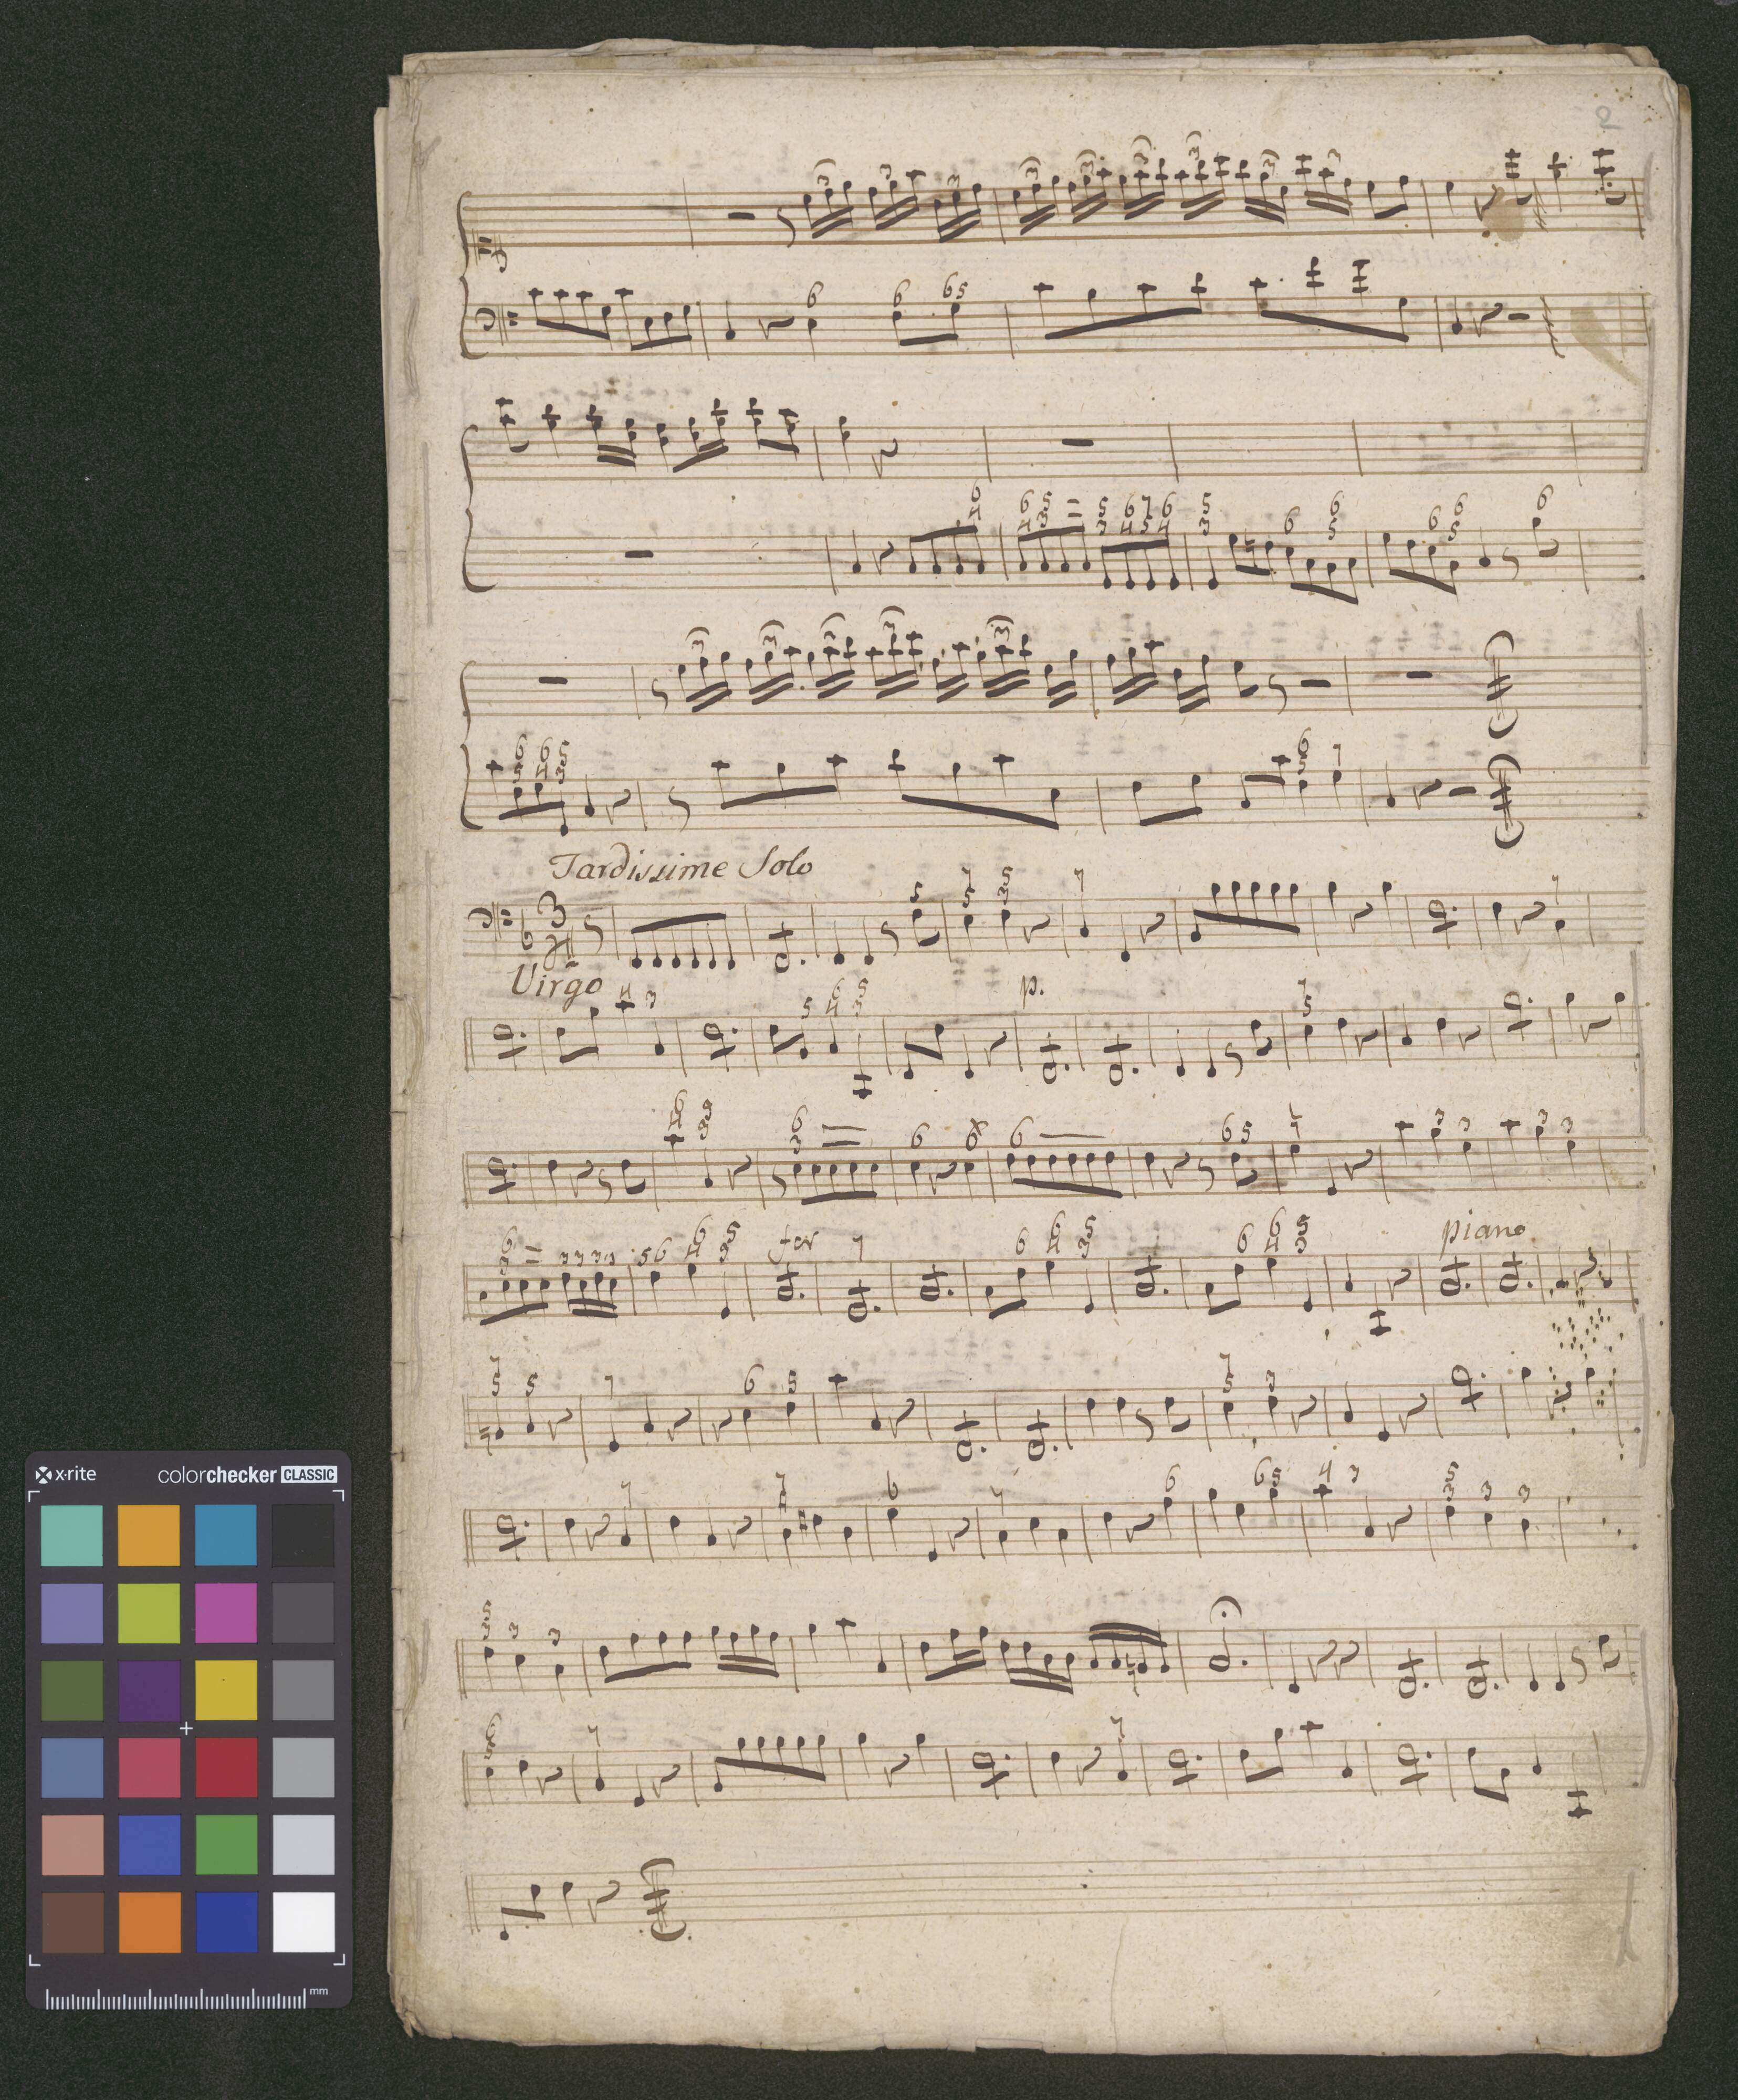 2
Tardissime Solo
Virgo
p.
for
piano
x-rite colorchecker CLASSIC
mm